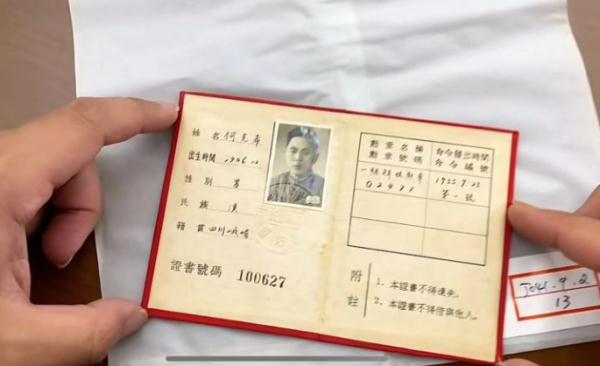 姓名 何克希
出生時間 1906.12
性別 男
民族 漢
籍貫 四川峨嵋
證書號碼 100627
勳章名稱 命令發出時間
勳章號碼 命令編號
一级解放勳章 1955.9.23
第一號
附註
1、本證書不得遺失。
2、本證書不得借與他人。
13